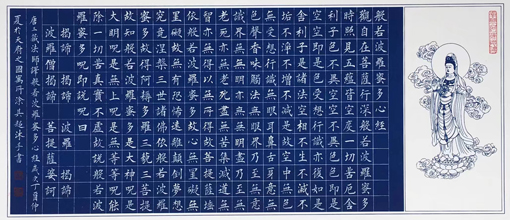 般若波羅蜜多心經
觀自在菩薩行深般若波羅蜜多
時照見五蘊皆空度一切苦厄舍
利子色不異空空不異色色即是
空空即是色受想行識亦復如是
舍利子是諸法空相不生不滅不
垢不淨不增不減是故空中無色
無受想行識無眼耳鼻舌身意無
色聲香味觸法無眼界乃至無意
識界無無明亦無無明盡乃至無
老死亦無老死盡無苦集滅道無
智亦無得以無所得故菩提薩埵
依般若波羅蜜多故心無罣礙無
罣礙故無有恐怖遠離顛倒夢想
究竟涅槃三世諸佛依般若波羅
蜜多故得阿耨多羅三藐三菩提
故知般若波羅蜜多是大神咒是
大明咒是無上咒是無等等咒能
除一切苦真實不虛故說般若波
羅蜜多咒即說咒曰
揭諦 揭諦 波羅 揭諦
波羅僧揭諦 菩提薩婆訶
唐三藏法師譯般若波羅蜜多心經歲次丁酉仲
夏於天府之國 沐手書